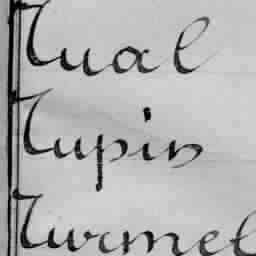 Tual
Tupin
Turmel